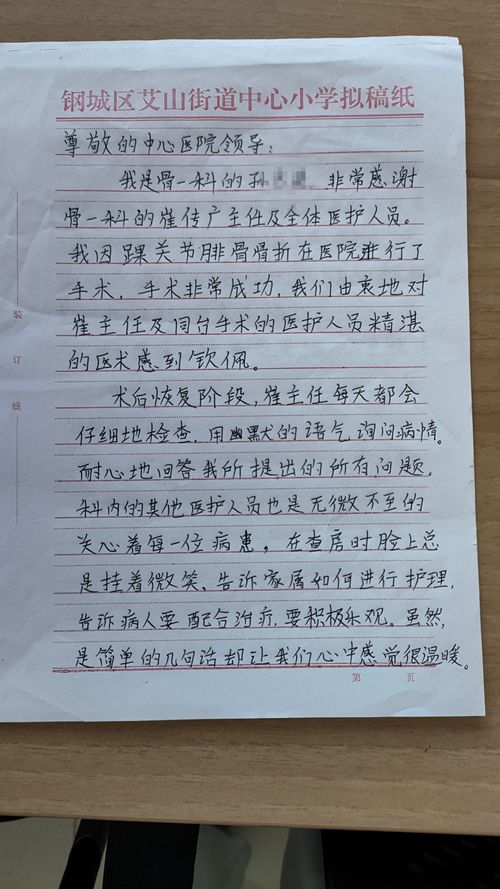 钢城区艾山街道中心小学拟稿纸
尊敬的中心医院领导：
我是骨一科的孙 非常感谢
骨一科的崔传广主任及全体医护人员。
我因踝关节腓骨骨折在医院进行了
手术，手术非常成功，我们由衷地对
崔主任及同台手术的医护人员精湛
的医术感到钦佩。
术后恢复阶段，崔主任每天都会
仔细地检查，用幽默的语气询问病情。
耐心地回答我所提出的所有问题，
科内的其他医护人员也是无微不至的
关心着每一位病患，在查房时脸上总
是挂着微笑、告诉家属如何进行护理，
告诉病人要配合治疗，要积极乐观。虽然，
是简单的几句话却让我们心中感觉很温暖。
第 页
装
订
线